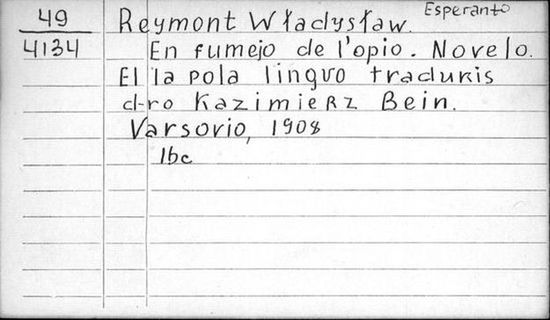 Esperanto
49
4134
Reymont Władysław.
En fumejo de l'opio. Novelo.
El la pola lingvo tradukis
d-ro Kazimierz Bein.
Varsovio, 1908